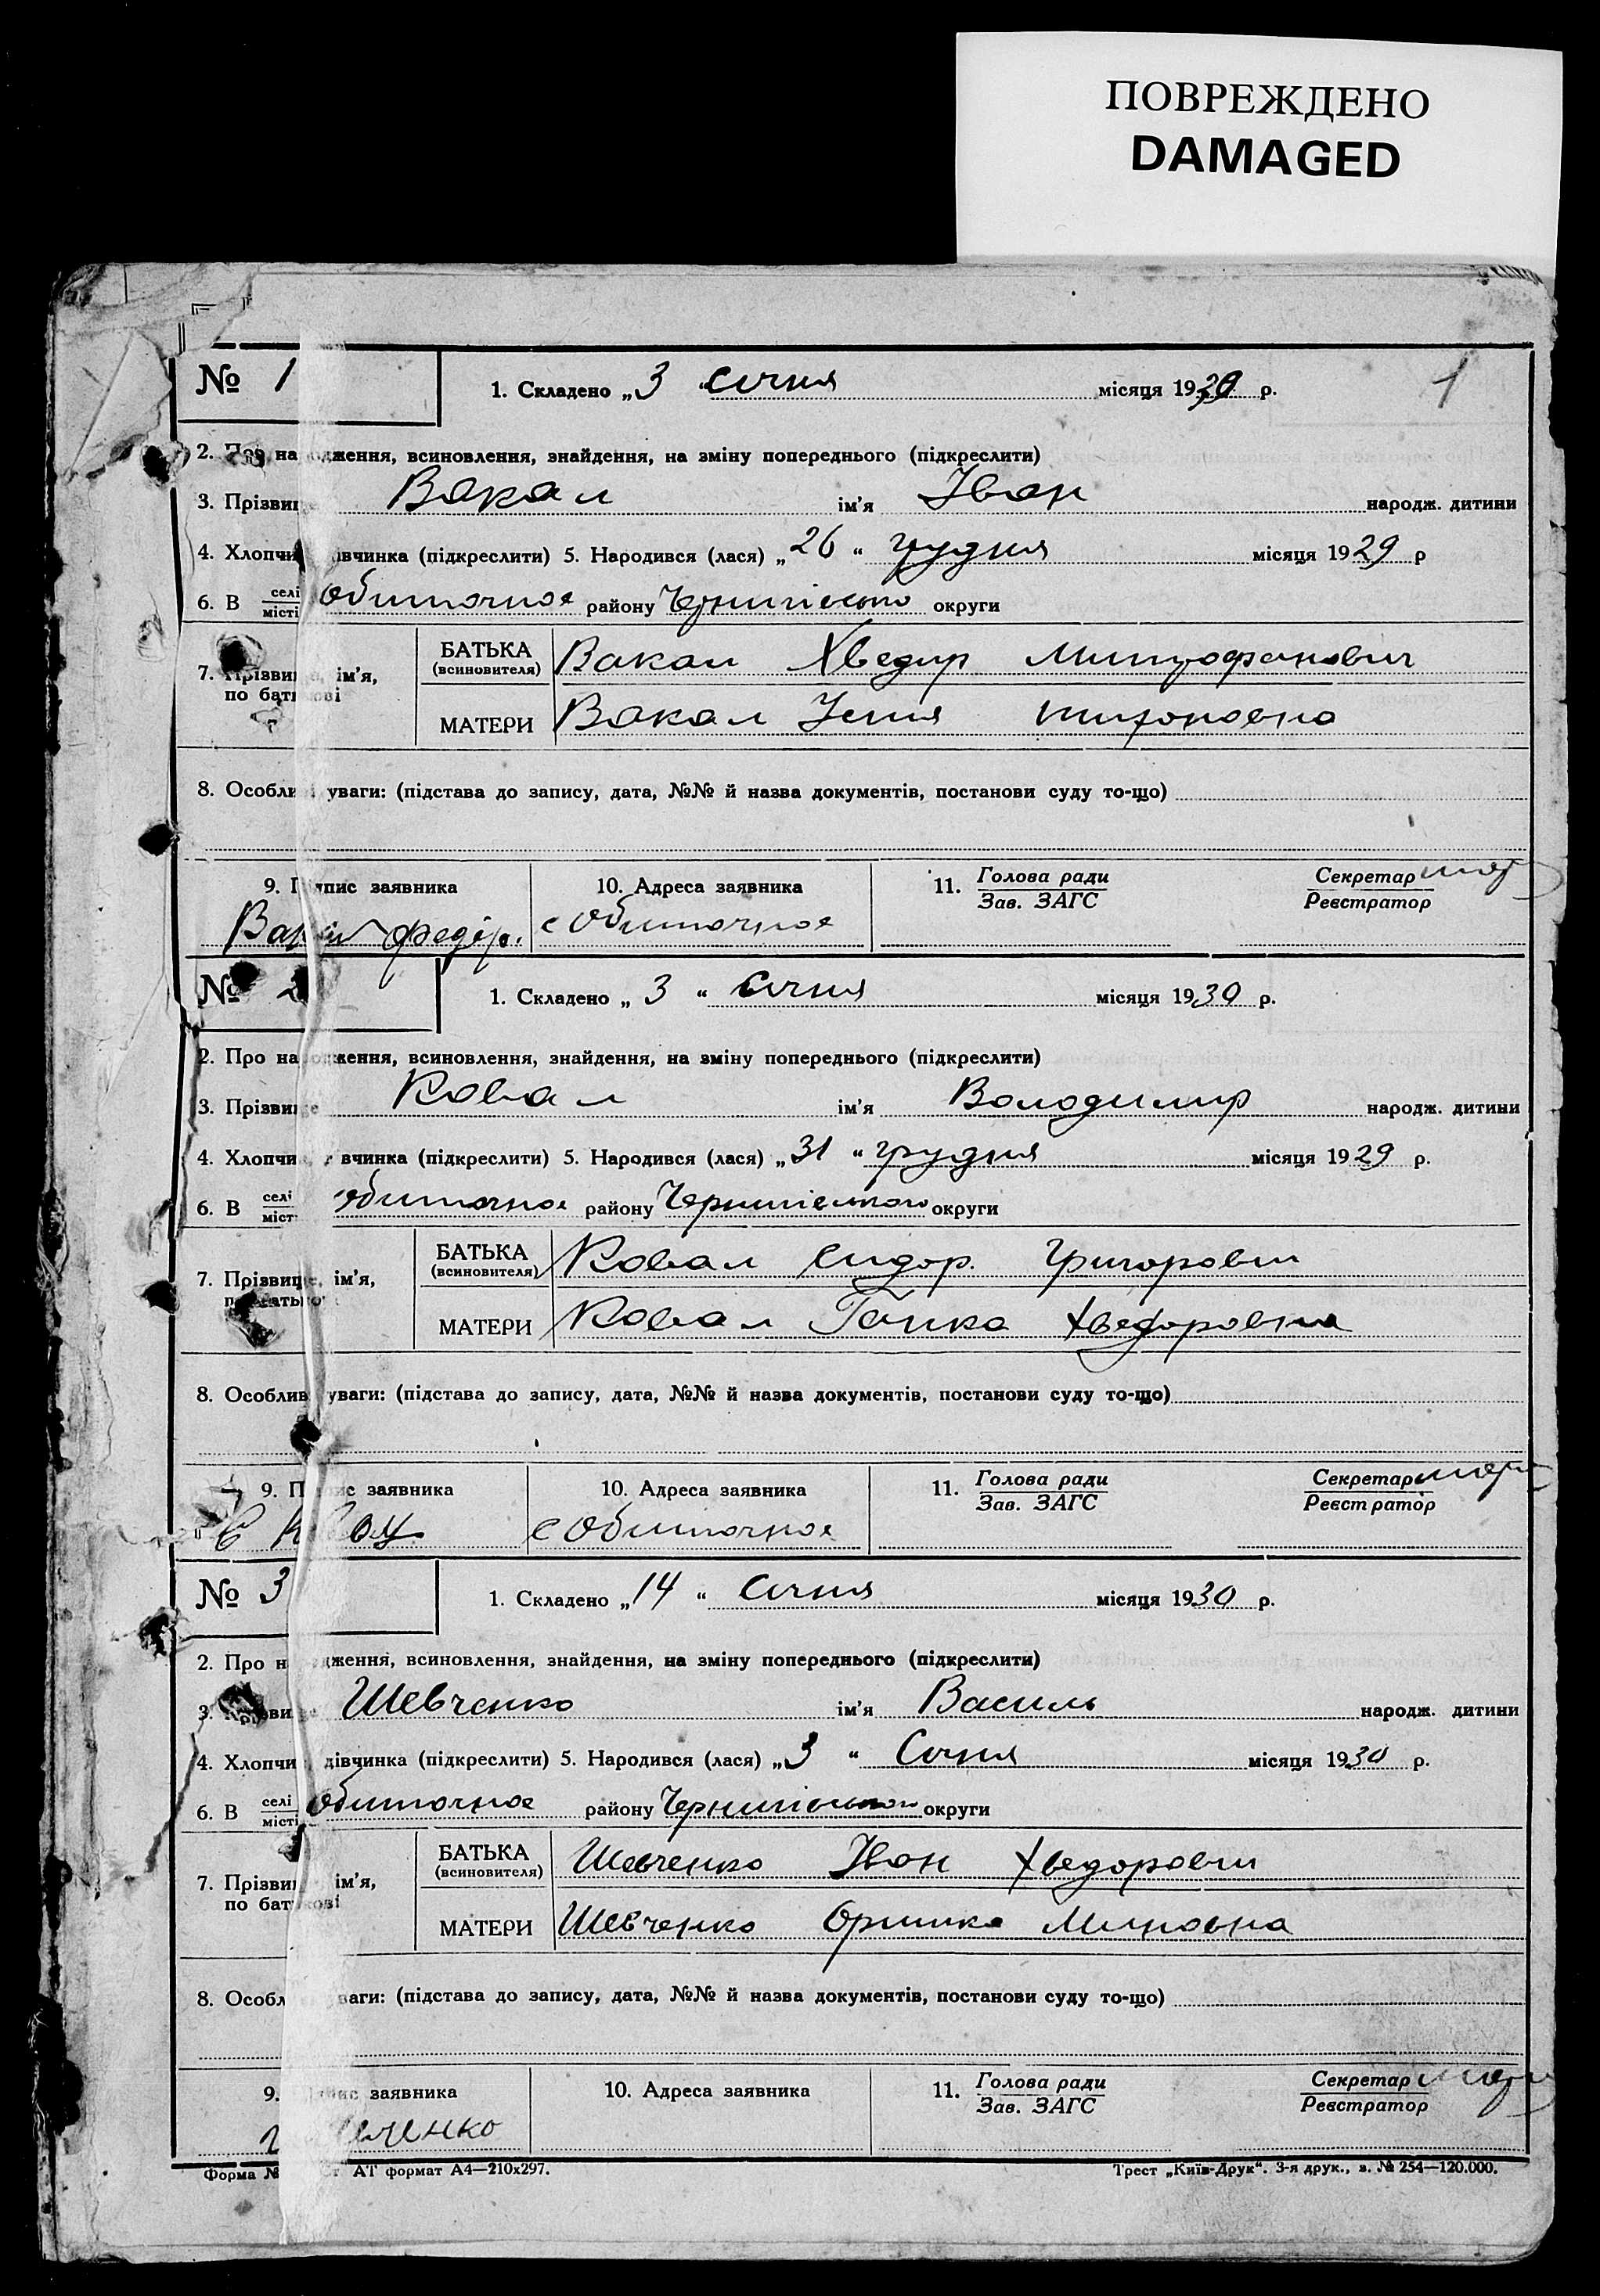 ПОВРЕЖДЕНО
DAMAGED
№ 1
1. Складено „ 3 “ січня місяця 1930 р.
1
2. Про народження, всиновлення, знайдення, на зміну попереднього (підкреслити)
3. Прізвище Вакал ім’я Іван народж. дитини
4. Хлопчик, дівчинка (підкреслити) 5. Народився (лася) „ 26 “ грудня місяця 1929 р
6. В селі Обиточное району Чернигівського округи
місті
7. Прізвище, ім’я, по батькові
БАТЬКА (всиновителя) Вакал Хведир Митрофанович
МАТЕРИ Вакал Тихоновна
8. Особливі уваги: (підстава до запису, дата, №№ й назва документів, постанови суду то-що)
9. Підпис заявника 10. Адреса заявника 11. Голова ради Секретар
Зав. ЗАГС Реєстратор
Вакал Федір. с Обиточное
№ 2
1. Складено „ 3 “ січня місяця 1930 р.
2. Про народження, всиновлення, знайдення, на зміну попереднього (підкреслити)
3. Прізвище Ковал ім’я Володимир народж. дитини
4. Хлопчик, дівчинка (підкреслити) 5. Народився (лася) „ 31 “ грудня місяця 1929 р.
6. В селі Обиточное району Чернигівського округи
місті
7. Прізвище, ім’я, по батькові
БАТЬКА (всиновителя) Ковал Сидор. Григорович
МАТЕРИ Ковал Ганка Хведоровна
8. Особливі уваги: (підстава до запису, дата, №№ й назва документів, постанови суду то-що)
9. Підпис заявника 10. Адреса заявника 11. Голова ради Секретар
Зав. ЗАГС Реєстратор
с Обиточное
№ 3
1. Складено „ 14 “ січня місяця 1930 р.
2. Про народження, всиновлення, знайдення, на зміну попереднього (підкреслити)
3. Прізвище Шевченко ім’я Василь народж. дитини
4. Хлопчик, дівчинка (підкреслити) 5. Народився (лася) „ 3 “ Січня місяця 1930 р.
6. В селі Обиточное району Чернигівського округи
місті
7. Прізвище, ім’я, по батькові
БАТЬКА (всиновителя) Шевченко Іван Хведорович
МАТЕРИ Шевченко Оришка Миновна
8. Особливі уваги: (підстава до запису, дата, №№ й назва документів, постанови суду то-що)
9. Підпис заявника 10. Адреса заявника 11. Голова ради Секретар
Зав. ЗАГС Реєстратор
Шевченко
Форма № АТ формат А4—210x297. Трест „Київ-Друк“. 3-я друк., з. № 254—120.000.